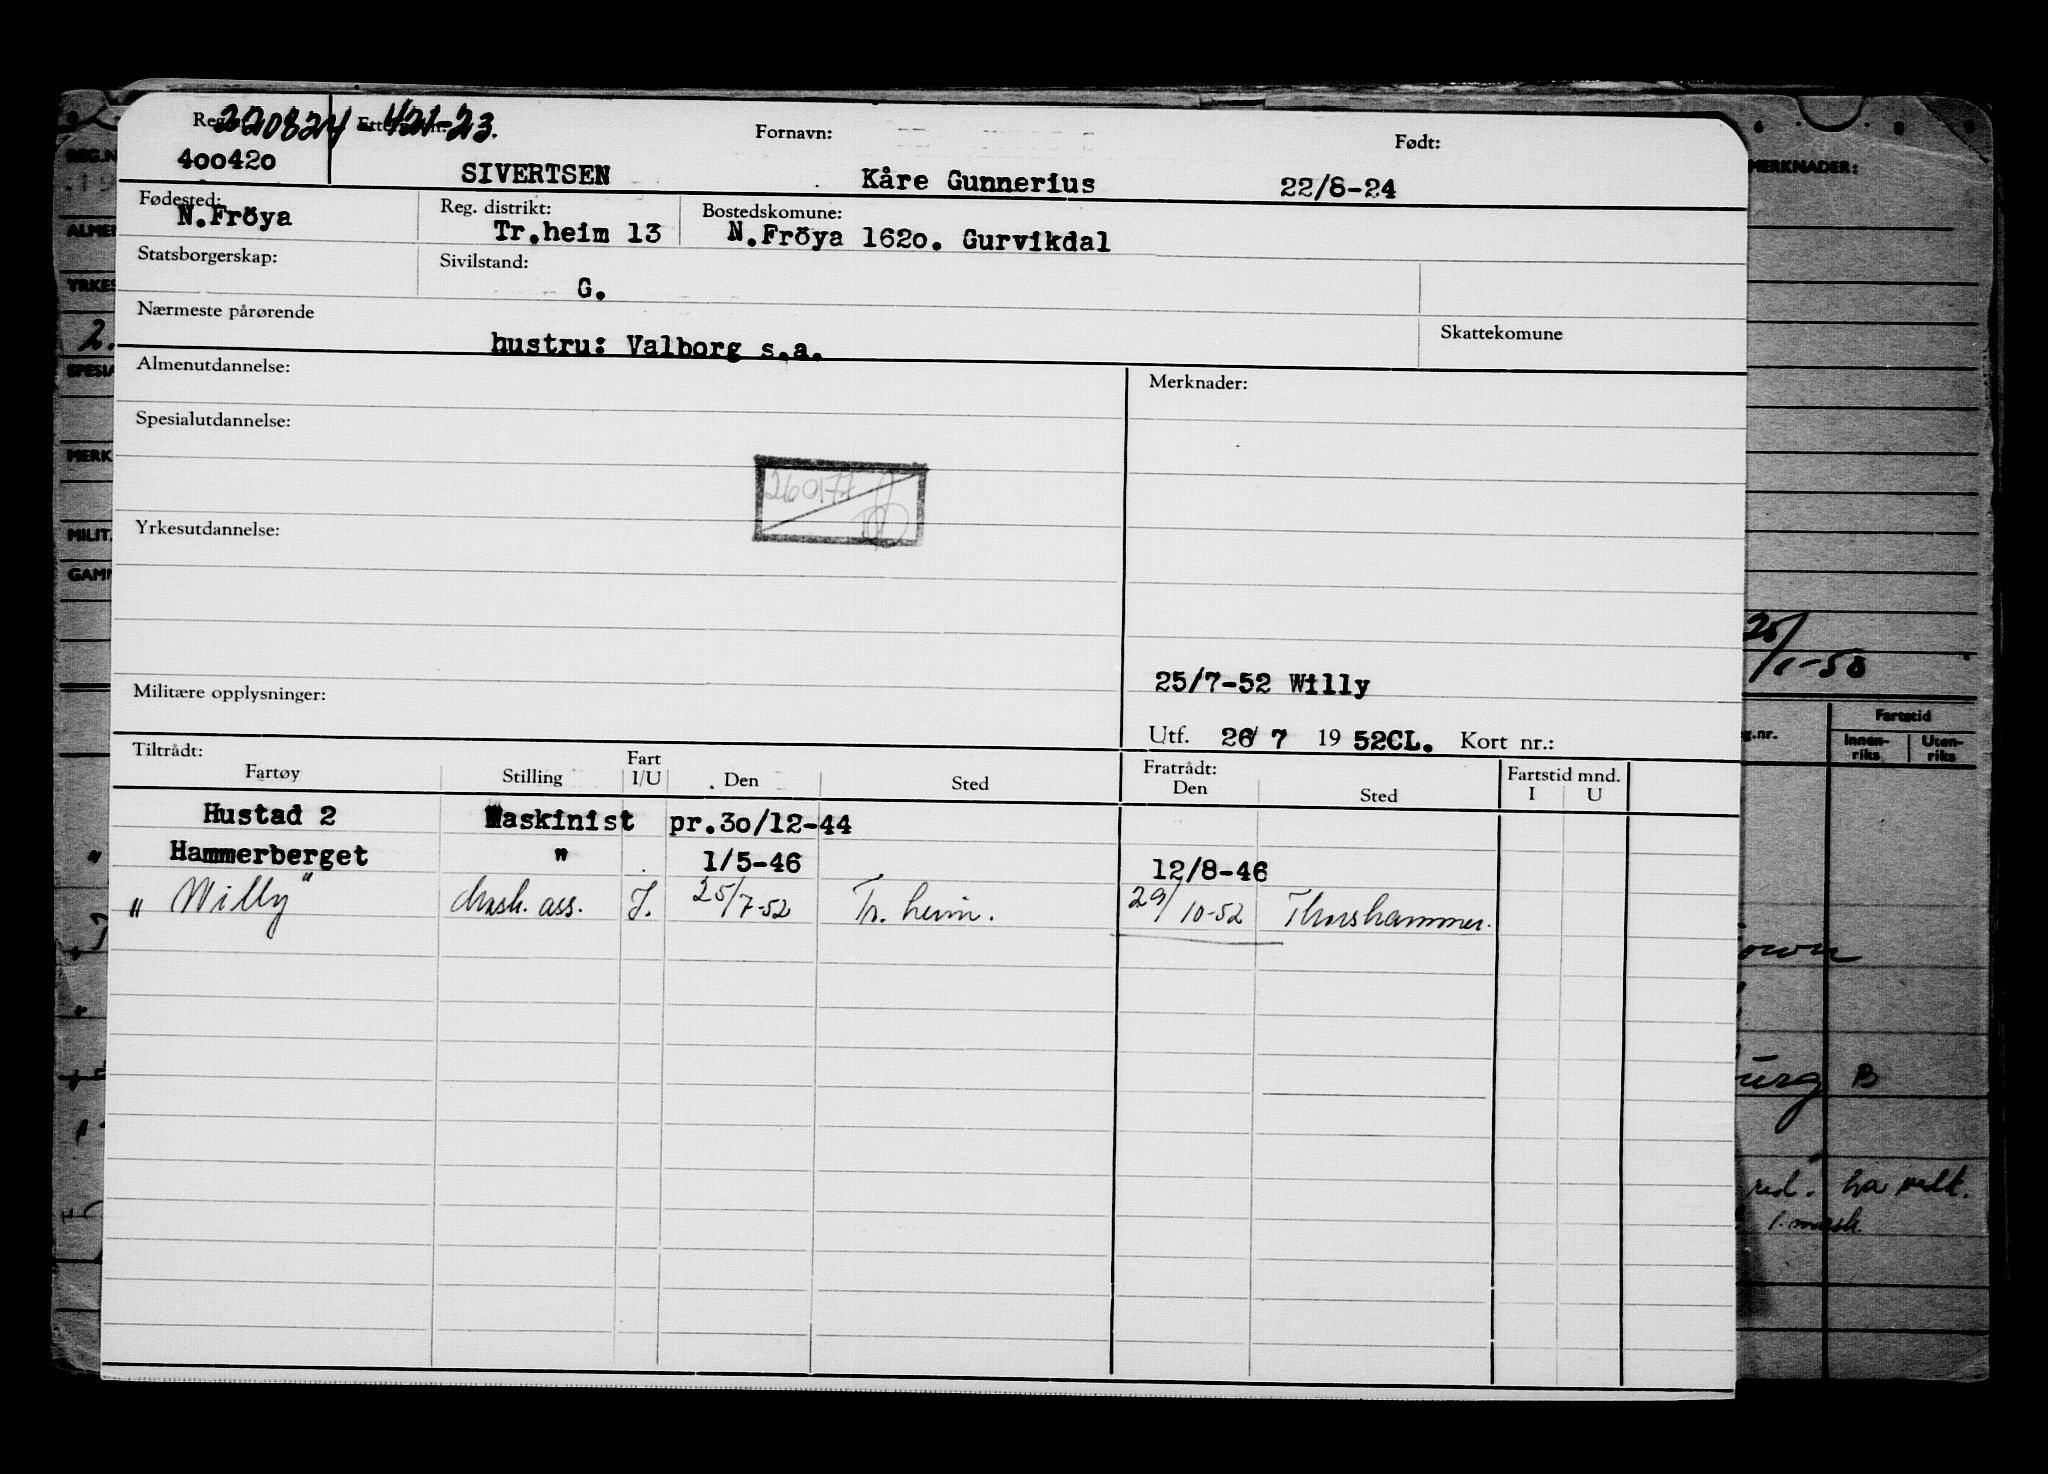 220824 - 421-23.
Fornavn: Født:
400420 SIVERTSEN Kåre Gunnerius 22/8-24
Fødested: Reg. distrikt: Bostedskomune:
N.Fröya Tr.heim 13 N.Fröya 1620. Gurvikdal
Statsborgerskap: Sivilstand:
G.
Nærmeste pårørende Skattekomune
hustru: Valborg s.a.
Almenutdannelse: Merknader:
Spesialutdannelse:
260177
Yrkesutdannelse:
25/7-52 Willy
Militære opplysninger:
Utf. 26/ 7 19 52CL. Kort nr.:
Tiltrådt: Fratrådt:
Fartøy Stilling Fart I/U Den Sted Den Sted Fartstid mnd. I U
Hustad 2 Maskinist pr.30/12-44
Hammerberget " 1/5-46 12/8-46
" Willy" Mask. ass. I. 25/7-52 Tr. heim. 29/10-52 Thorshammer.
MERKNADER:
25/1-50
Fartstid
Innen-riks Uten-riks
urg B
red. ha velt.
1. mask.